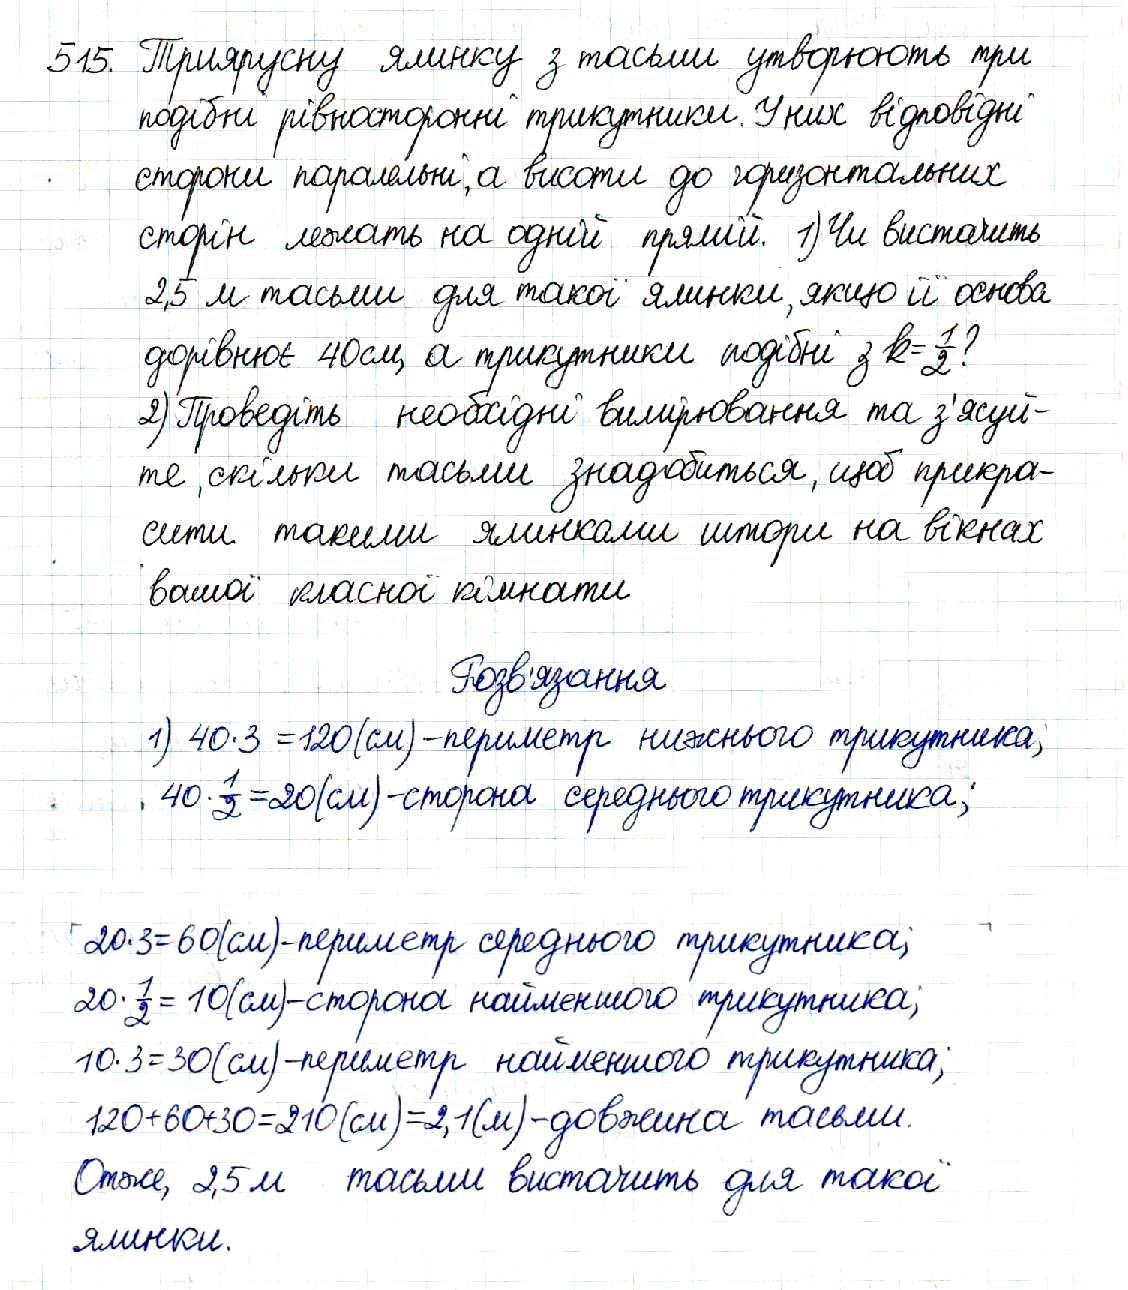 515. Триярусну ялинку з тасьми утворюють три
подібні рівносторонні трикутники. У них відповідні
сторони паралельні, а висоти до горизонтальних
сторін лежать на одній прямій. 1) Чи вистачить
2,5 м тасьми для такої ялинки, якщо її основа
дорівнює 40 см, а трикутники подібні з k = 1/2?
2) Проведіть необхідні вимірювання та з'ясуй-
те, скільки тасьми знадобиться, щоб прикра-
сити такими ялинками штори на вікнах
вашої класної кімнати
Розв'язання
1) 40·3 = 120 (см) - периметр нижнього трикутника;
40·1/2 = 20 (см) - сторона середнього трикутника;
20·3 = 60 (см) - периметр середнього трикутника;
20·1/2 = 10 (см) - сторона найменшого трикутника;
10·3 = 30 (см) - периметр найменшого трикутника;
120+60+30 = 210 (см) = 2,1 (м) - довжина тасьми.
Отже, 2,5 м тасьми вистачить для такої
ялинки.